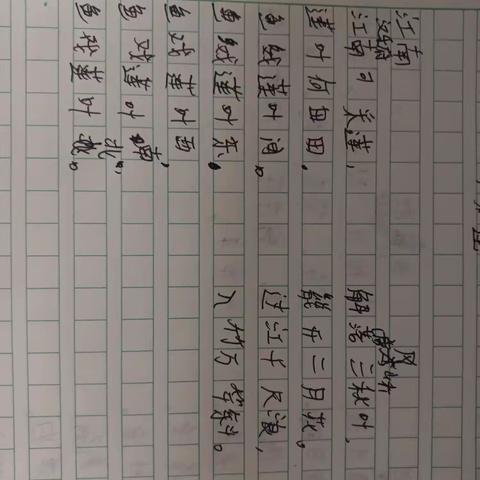 江南
江南可采莲，
莲叶何田田。
鱼戏莲叶间。
鱼戏莲叶东。
鱼戏莲叶西，
鱼戏莲叶南，
鱼戏莲叶北。
风
解落三秋叶，
能开二月花。
过江千尺浪，
入竹万竿斜。